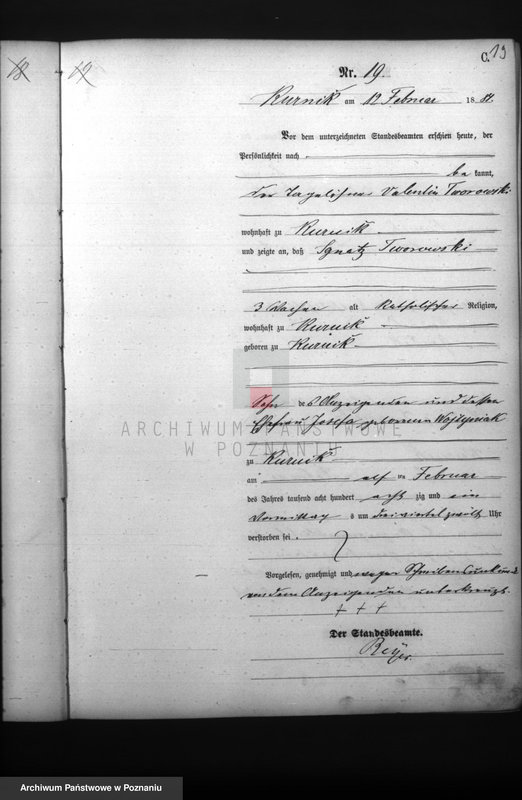 18 19
C. 19
Nr. 19.
Kurnik am 12 Februar 1881.
Vor dem unterzeichneten Standesbeamten erschien heute, der
Persönlichkeit nach
be kannt,
der Tagelöhner Valentin Tworowski
wohnhaft zu Kurnik
und zeigte an, daß Ignatz Tworowski
3 Wochen alt katholischer Religion,
wohnhaft zu Kurnik
geboren zu Kurnik
Sohn des Anzeigenden und dessen
Ehefrau Josefa geborenen
zu Kurnik
am elf ten Februar
des Jahres tausend acht hundert acht zig und ein
Vormittag s um drei viertel zwölf Uhr
verstorben sei.
Vorgelesen, genehmigt und wegen Schreibensunkunde
von dem Anzeigenden unterkreuzt.
+ + +
Der Standesbeamte.
ARCHIWUM PAŃSTWOWE
W POZNANIU
Archiwum Państwowe w Poznaniu